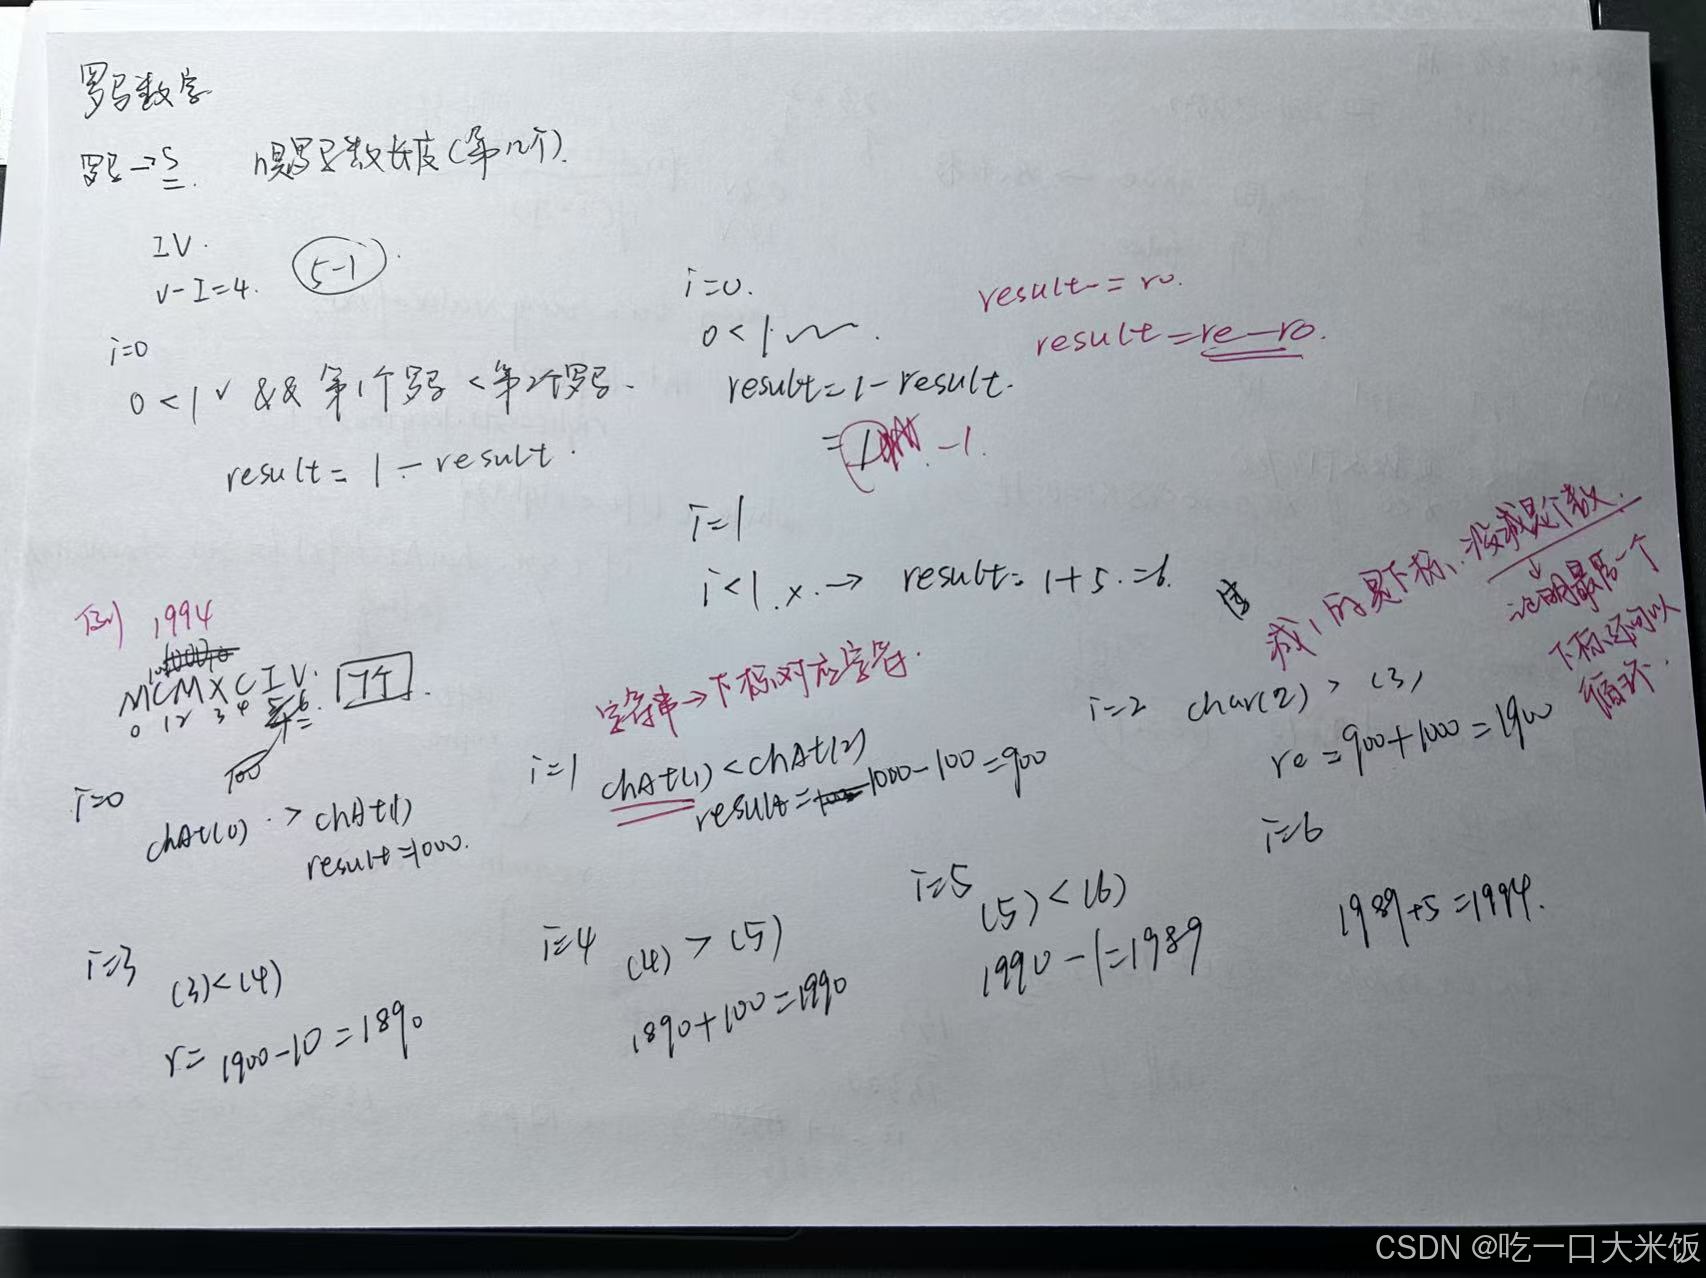 罗马数字
罗马→S. n是罗马数长度(第几个).
IV.
V-I=4. 5-1
i=0
0<1 ✓ && 第1个罗马<第2个罗马.
result= 1-result.
i=0.
0<1
result=1-result.
= 1 -1.
i=1
i<1 . x. → result= 1+5.=6.
result-=ro.
result=re-ro.
减1的是下标, 没减是个数.
↓
说明最后一个
下标还可以
循环.
例 1994
MCMXCIV. 7个.
0 1 2 3 4 5 6
100
字符串→下标对应字符.
i=0
chAt(0) > chAt(1)
result=1000.
i=1 chAt(1)<chAt(2)
result=1000-100=900
i=2 char(2) > (3)
re=900+1000=1900
i=3
(3)<(4)
r= 1900-10=1890
i=4 (4) > (5)
1890+100=1990
i=5 (5)<(6)
1990-1=1989
i=6
1989+5=1994.
CSDN @吃一口大米饭